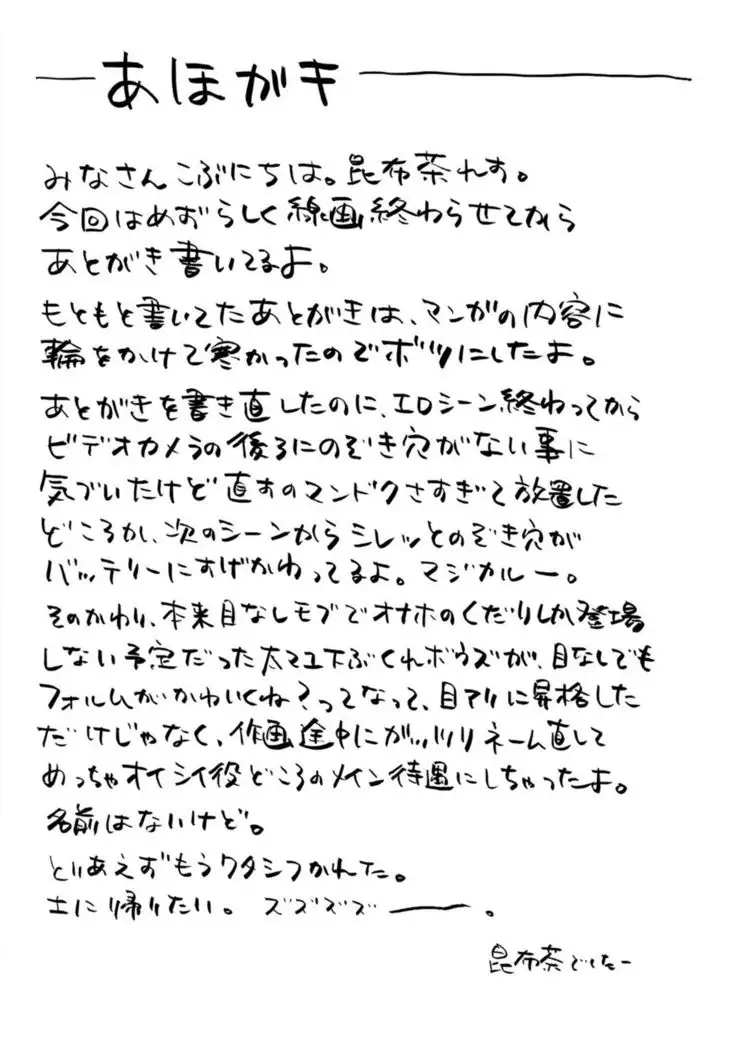 あほがき
みなさんこぶにちは。昆布茶れす。
今回はめずらしく線画終わらせてから
あとがき書いてるよ。
もともと書いてたあとがきは、マンガの内容に
輪をかけて寒かったのでボツにしたよ。
あとがきを書き直したのに、エロシーン終わってから
ビデオカメラの後ろにのぞき穴がない事に
気づいたけど直すのマンドクさすぎて放置した
どころか、次のシーンからシレッとのぞき穴が
バッテリーにすげかわってるよ。マジカルー。
そのかわり、本来目なしモブでオナホのくだりしか登場
しない予定だった太マユ下ぶくれボウズが、目なしでも
フォルムがかわいくね?ってなって、目アリに昇格した
だけじゃなく、作画途中にガッツリネーム直して
めっちゃオイシイ役どころのメイン待遇にしちゃったよ。
名前はないけど。
とりあえずもうワタシつかれた。
土に帰りたい。ズズズズ――。
昆布茶でしたー